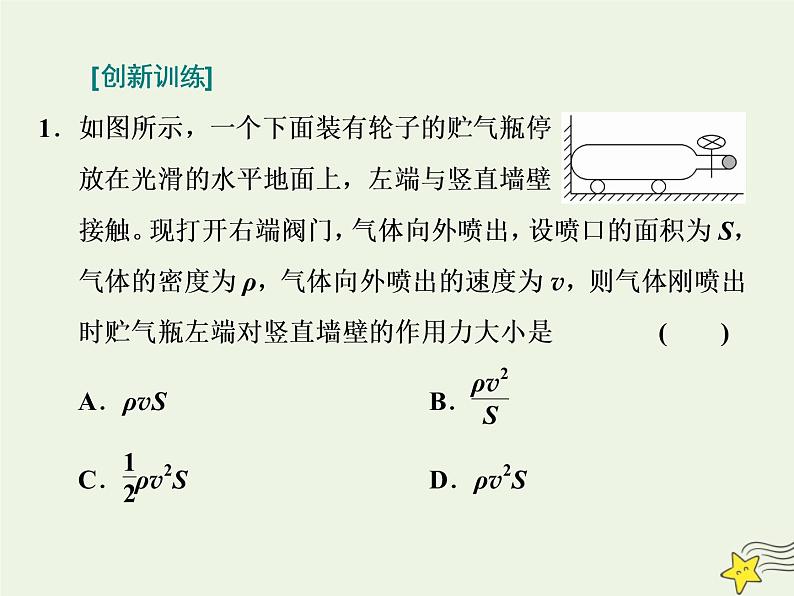 [创新训练]
1. 如图所示，一个下面装有轮子的贮气瓶停
放在光滑的水平地面上，左端与竖直墙壁
接触。现打开右端阀门，气体向外喷出，设喷口的面积为 S，
气体的密度为 ρ，气体向外喷出的速度为 v，则气体刚喷出
时贮气瓶左端对竖直墙壁的作用力大小是 ( )
A. ρvS B. ρv²/S
C. 1/2 ρv²S D. ρv²S